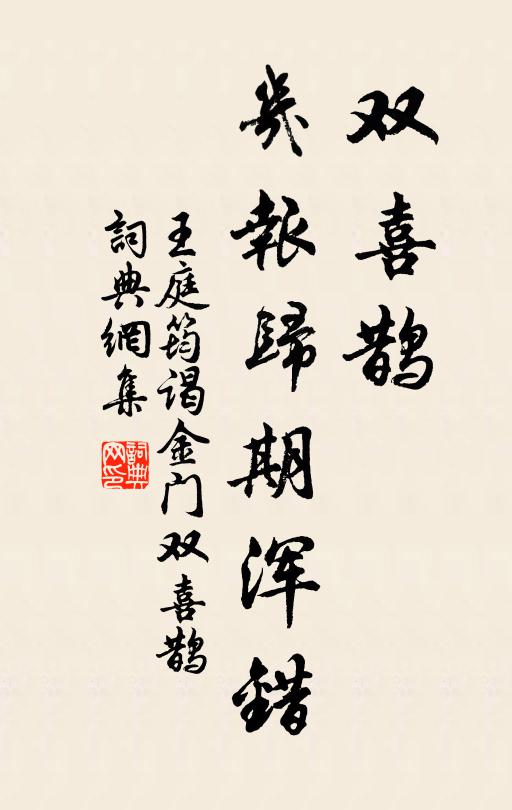 双喜鹊
几報歸期浑錯
王庭筠谒金门双喜鹊
詞典網集
詞典網印